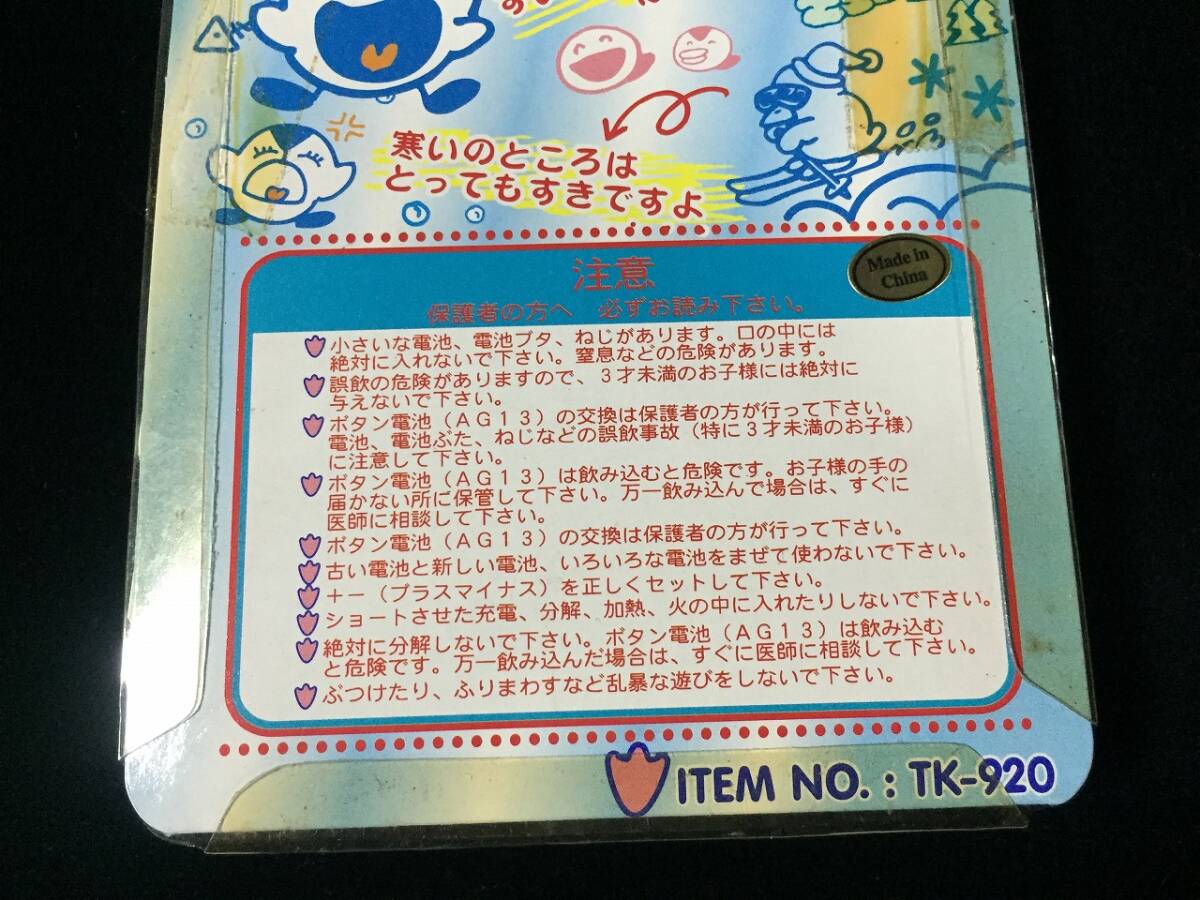 寒いのところは
とってもすきですよ
注意
Made in
China
保護者の方へ 必ずお読み下さい。
小さいな電池、電池ブタ、ねじがあります。口の中には
絶対に入れないで下さい。窒息などの危険があります。
誤飲の危険がありますので、3才未満のお子様には絶対に
与えないで下さい。
ボタン電池(AG13)の交換は保護者の方が行って下さい。
電池、電池ぶた、ねじなどの誤飲事故(特に3才未満のお子様)
に注意して下さい。
ボタン電池(AG13)は飲み込むと危険です。お子様の手の
届かない所に保管して下さい。万一飲み込んで場合は、すぐに
医師に相談して下さい。
ボタン電池(AG13)の交換は保護者の方が行って下さい。
古い電池と新しい電池、いろいろな電池をまぜて使わないで下さい。
+-(プラスマイナス)を正しくセットして下さい。
ショートさせた充電、分解、加熱、火の中に入れたりしないで下さい。
絶対に分解しないで下さい。ボタン電池(AG13)は飲み込む
と危険です。万一飲み込んだ場合は、すぐに医師に相談して下さい。
ぶつけたり、ふりまわすなど乱暴な遊びをしないで下さい。
ITEM NO. : TK-920